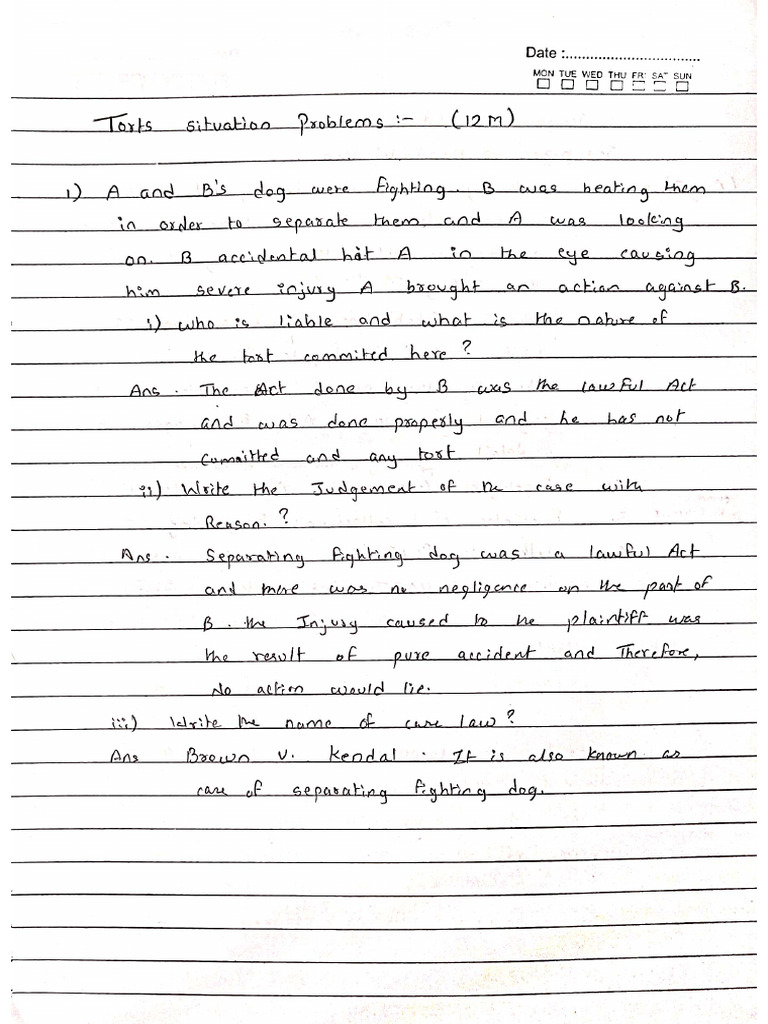 Date :..................................
MON TUE WED THU FRI SAT SUN
Torts situation Problems :- (12M)
1) A and B's dog were fighting. B was beating them
in order to separate them and A was looking
on. B accidental hit A in the eye causing
him severe injury A brought an action against B.
i) who is liable and what is the nature of
the tort commited here ?
Ans . The Act done by B was the lawful Act
and was done properly and he has not
committed and any tort
ii) Write the Judgement of the case with
Reason. ?
Ans . Separating fighting dog was a lawful Act
and there was no negligence on the part of
B . the Injury caused to the plaintiff was
the result of pure accident and Therefore,
No action would lie.
iii) Write the name of case law ?
Ans Brown v. Kendal . It is also known as
case of separating fighting dog.